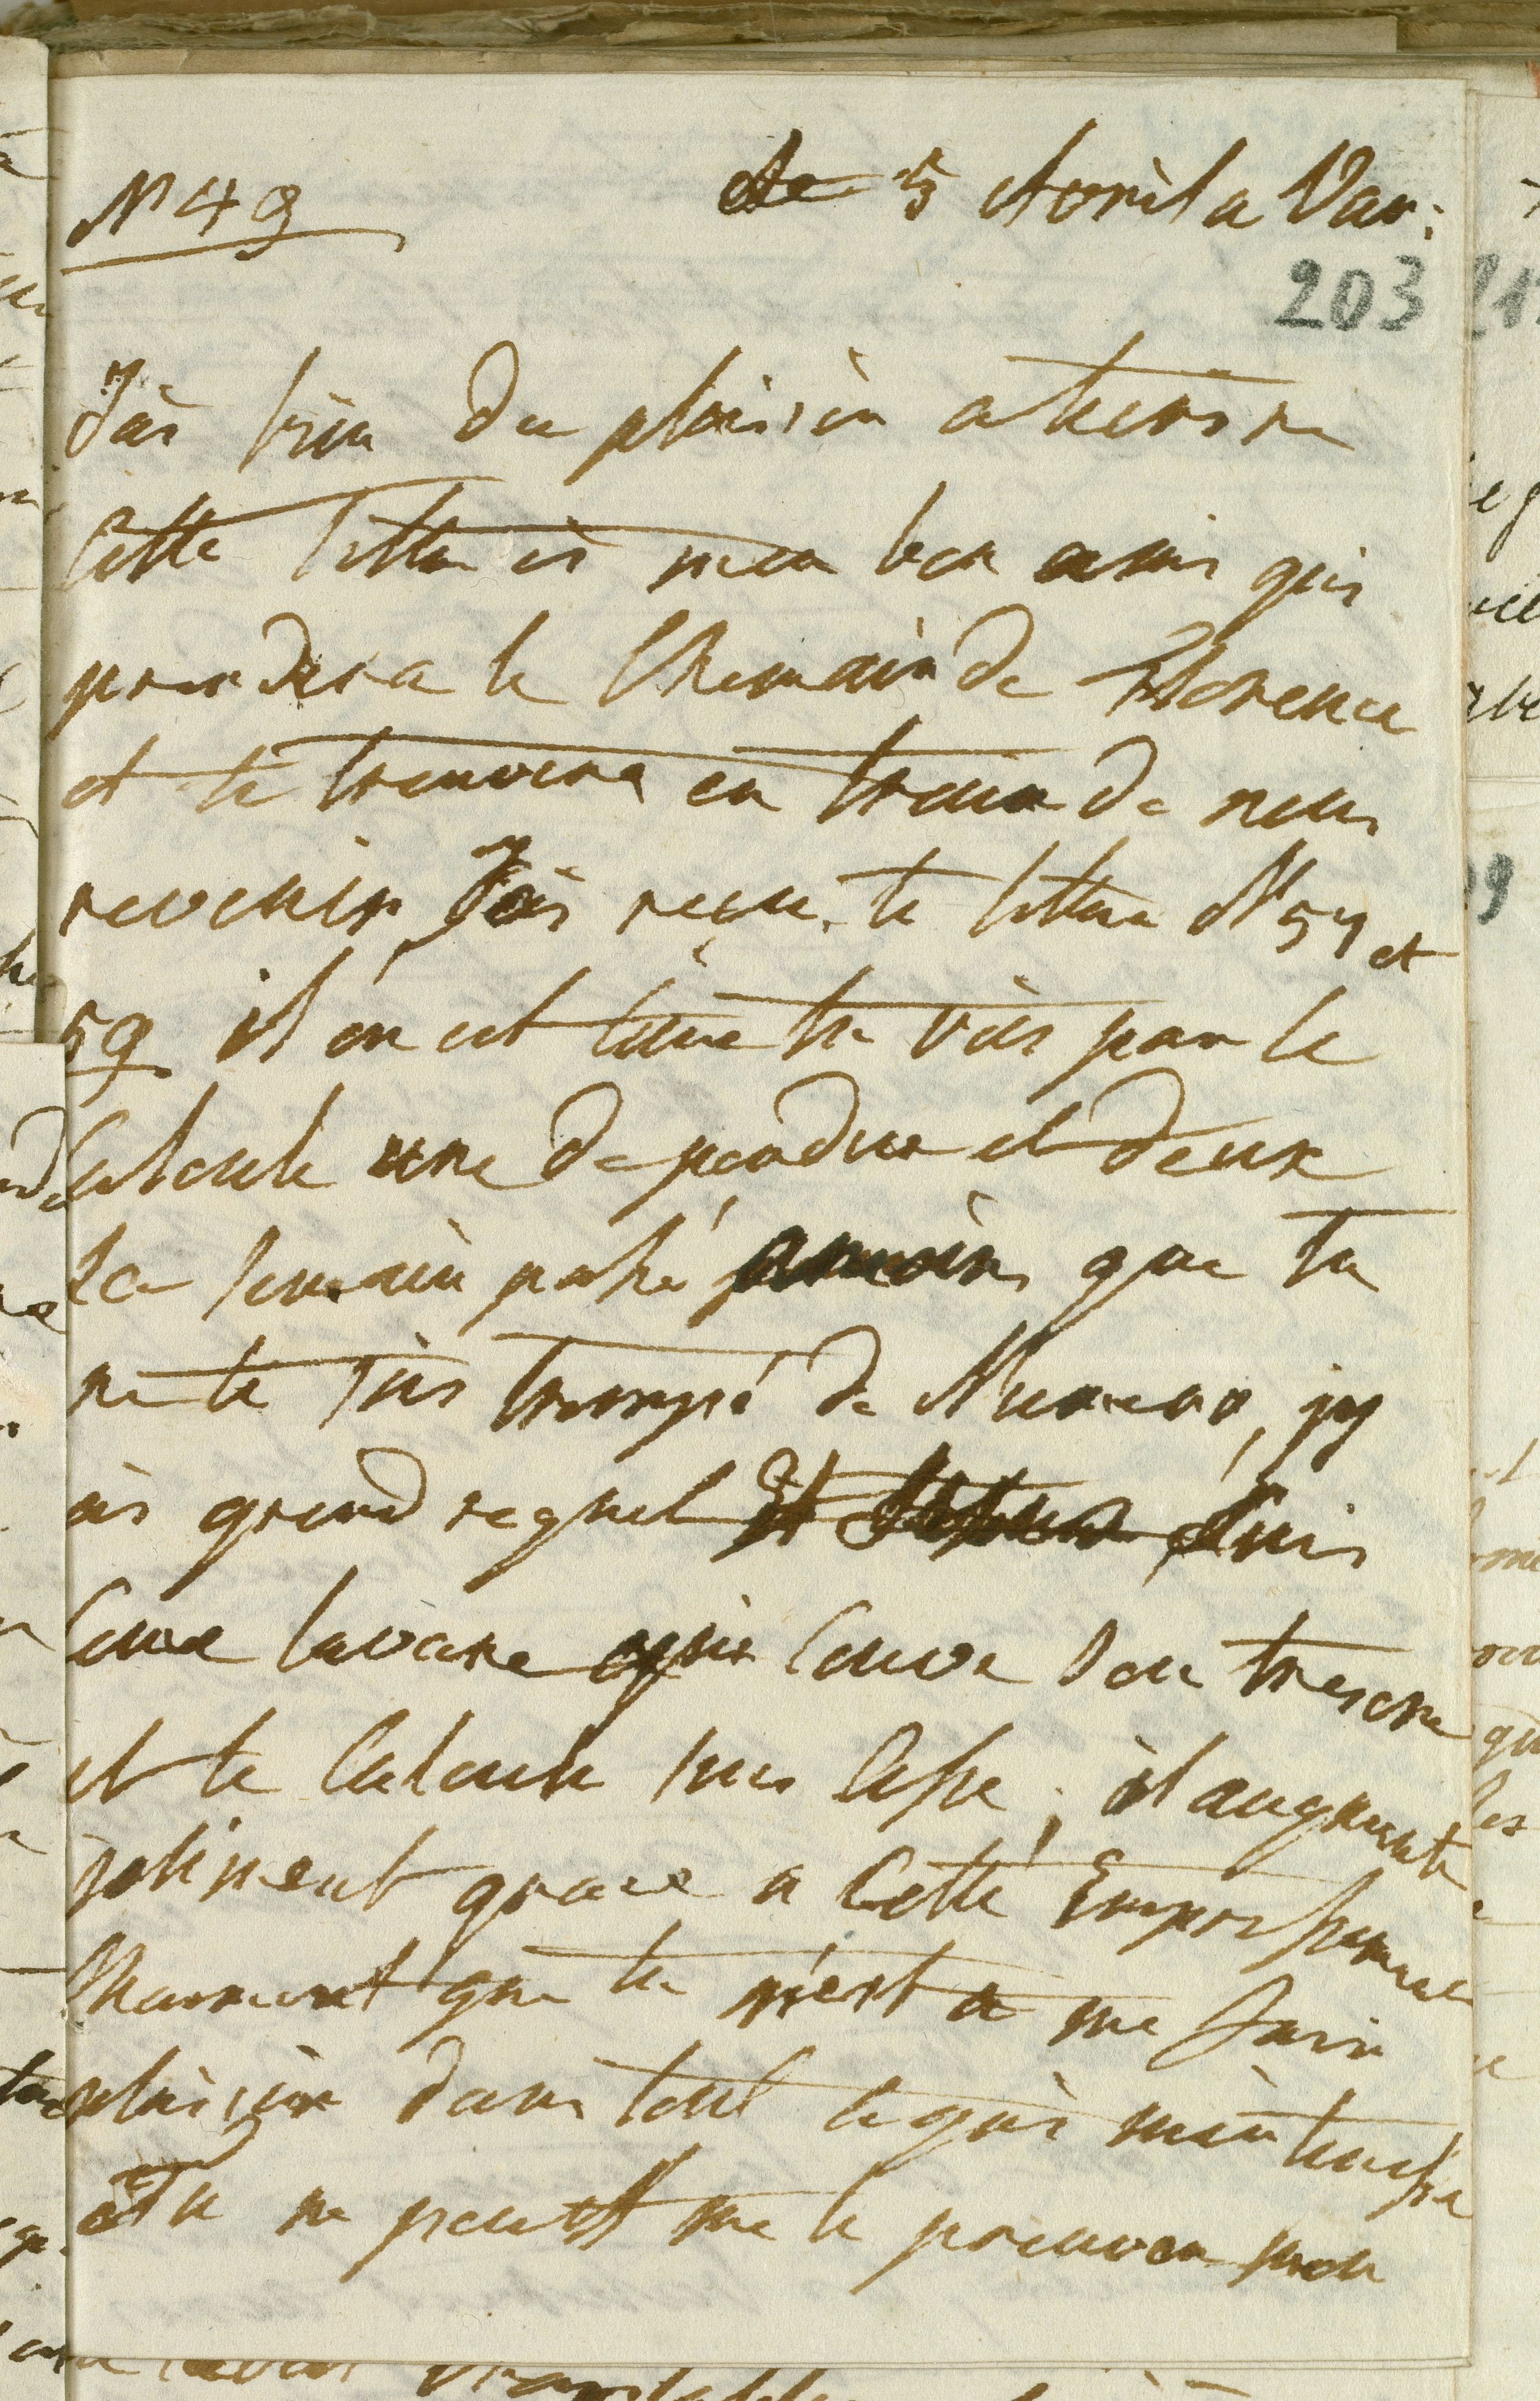 N 49
de 5 Avril a Var:
203
J'ai bien du plaisir a tecrire
Cette lettre ci mon bon ami qui
prendera le Chemain de Florence
et te trouvera en train de nous
revenir, J'ai reçue te lettre N 57 et
59 il on est Claire tu vois par le
Calcule une de perdue et deux
La semain passé, amoin que tu
ne te sois trompé de Numero, jy
ai grand regret
Come lavare qui Couve Son tresore
et te Calcule sur Cesse, il augmente
joliment grace a Cette
Charment que tu n'est a me faire
plaisir dans tout ce qui
Tu ne peut me le prouver mon